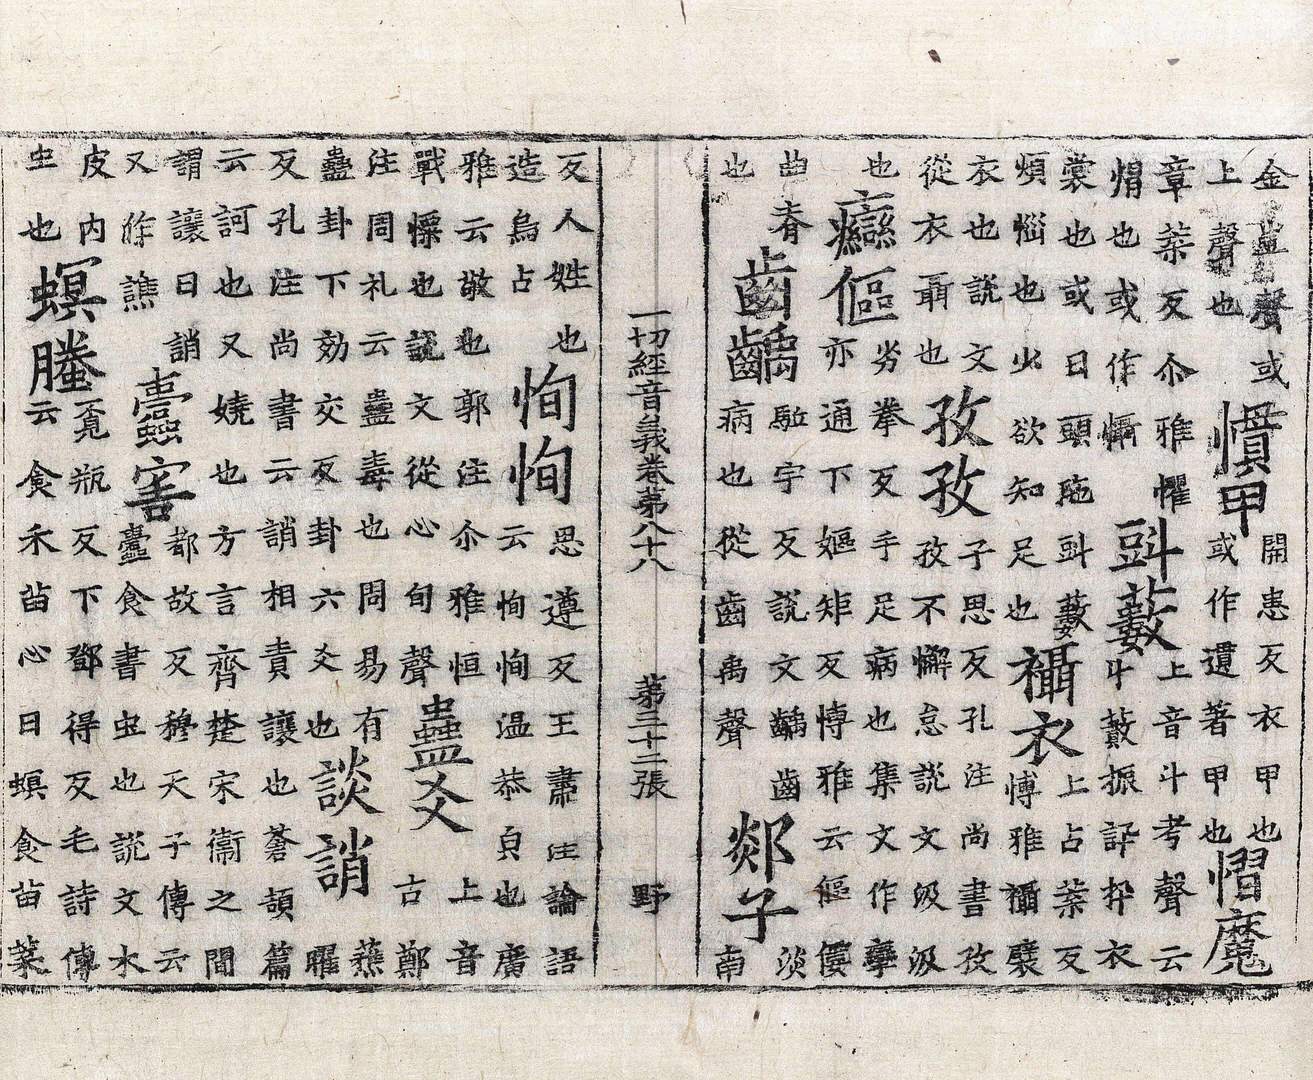 金韭聲或
上聲也
慣甲
開患反衣甲也
或作遺著甲也
慴魔
章葉反尒雅懼
也或作懾
㪷藪
上音斗考聲云
斗藪振評枠衣
裳也或曰頭陁㪷藪
煩惱也火欲知足也
襵衣
上占葉反
博雅襵襞
衣也說文
從衣聶也
孜孜
子思反孔注尚書孜
孜不懈怠說文汲汲
也
癵傴
劣拳反手足病也集文作孿
亦通下嫗矩反博雅云傴僂
曲脊
也
齒齲
駈宇反說文齲齒
病也從齒禹聲
郯子
淡
南
一切經音義卷第八十八 第三十二張 野
反人姓也
造烏占
恂恂
思遵反王肅注論語
云恂恂温恭皃也廣
雅云敬也郭注尒雅恒
戰慄也說文從心旬聲
蠱爻
上音
古鄭
注周礼云蠱毒也問易有
蠱卦下効交反卦六爻也
談誚
蕉
曜
反孔注尚書云誚相責讓也蒼頡篇
云訶也又嬈也方言齊楚宋衛之間
謂讓曰誚
又作譙
蠹害
都故反穆天子傳云
蠹食書虫也說文木
皮內
虫也
螟螣
覓瓶反下鄧得反毛詩傳
云食禾苗心曰螟食苗葉